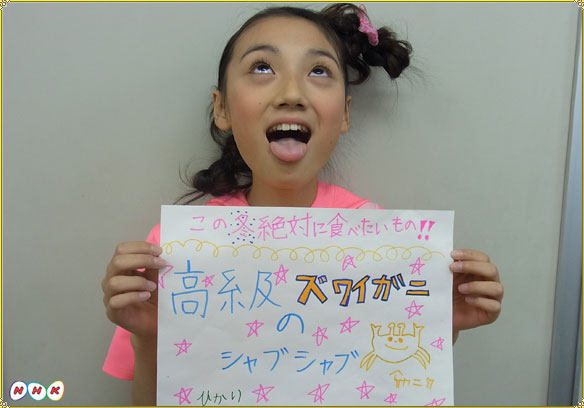 この冬絶対に食べたいもの!!
高級ズワイガニ
の
シャブシャブ
↑カニ!!
ひかり
NHK